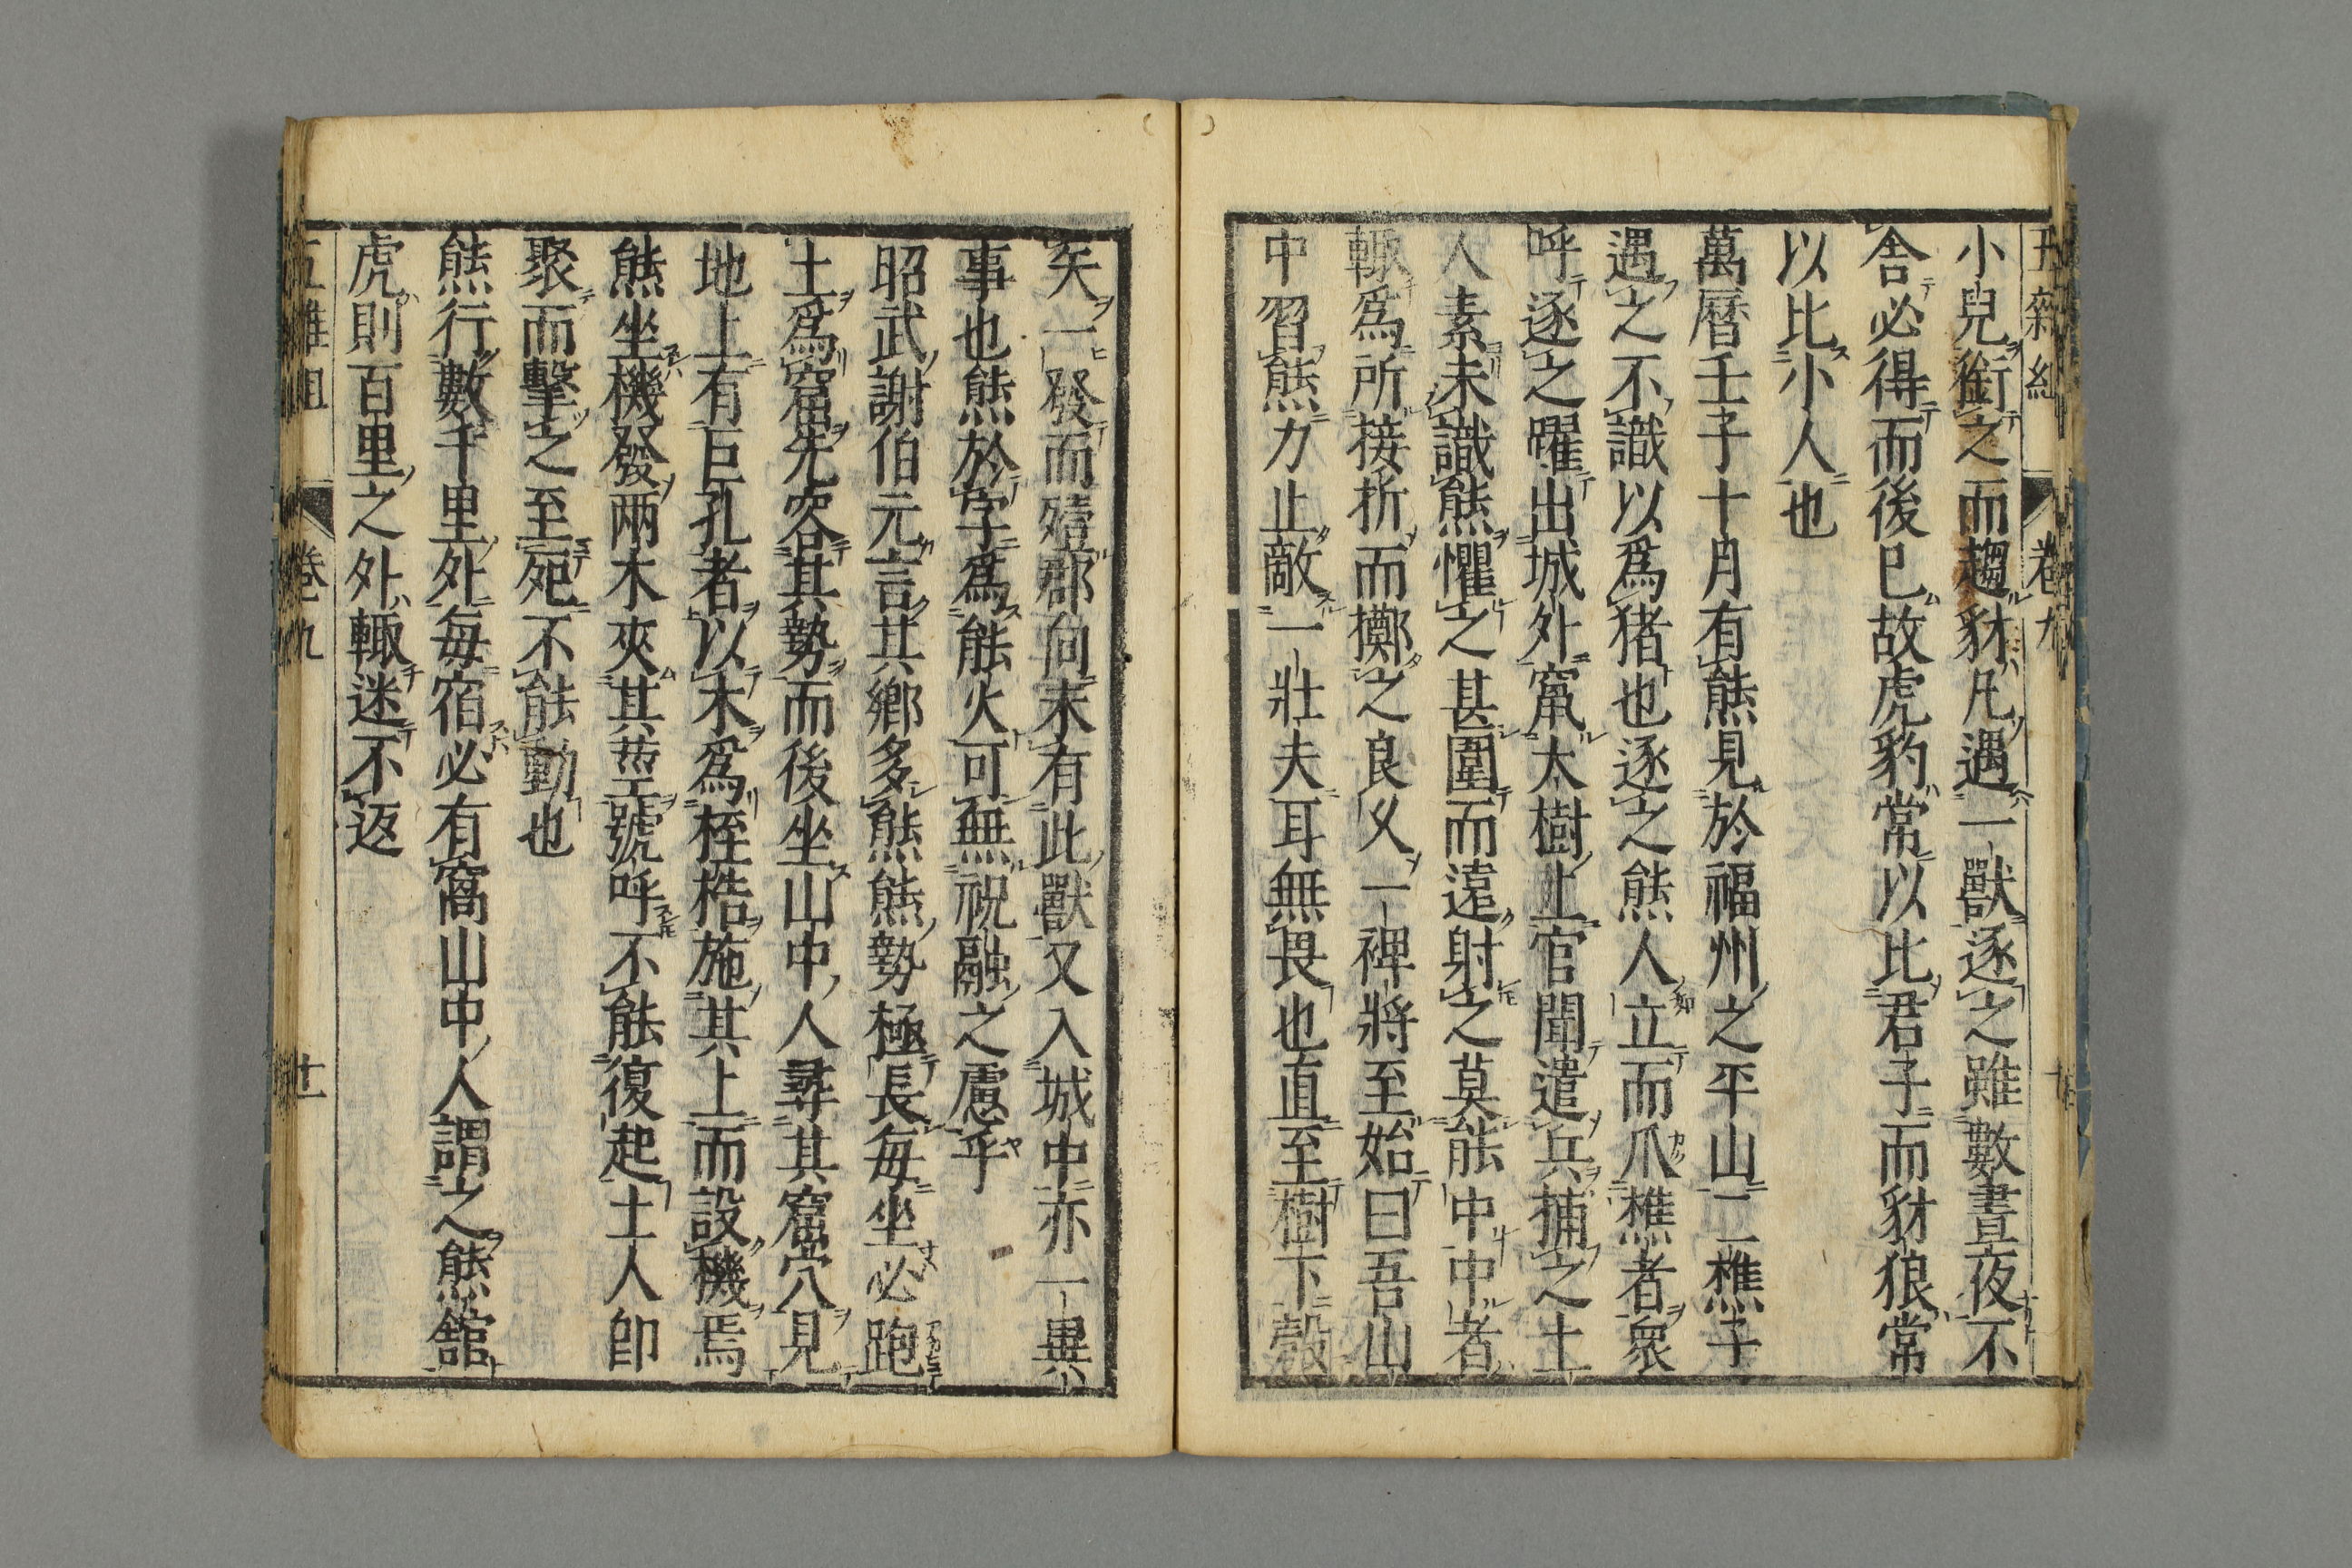 五雜組 卷九 十一
小兒銜之而趨豺凡遇一獸逐之雖數晝夜不
舍必得而後已故虎豹常以比君子而豺狼常
以比小人也
萬曆壬子十月有熊見於福州之平山二樵子
遇之不識以爲猪也逐之熊人立而爪樵者衆
呼逐之躍出城外竄大樹上官聞遣兵捕之土
人素未識熊懼之甚圍而遠射之莫能中中者
輙爲所接折而擲之良乆一裨將至始曰吾山
中習熊力止敵一壯夫耳無畏也直至樹下彀
矢一發而殪郡向未有此獸又入城中亦一異
事也熊於字爲能火可無祝融之慮乎
昭武謝伯元言其鄉多熊熊勢極長每坐必跑
土爲窟先容其勢而後坐山中人尋其窟穴見
地上有巨孔者以木爲桎梏施其上而設機焉
熊坐機發兩木夾其莖號呼不能復起土人卽
聚而擊之至死不能動也
熊行數千里外每宿必有窩山中人謂之熊舘
虎則百里之外輙迷不返
五雜組 卷九 十一